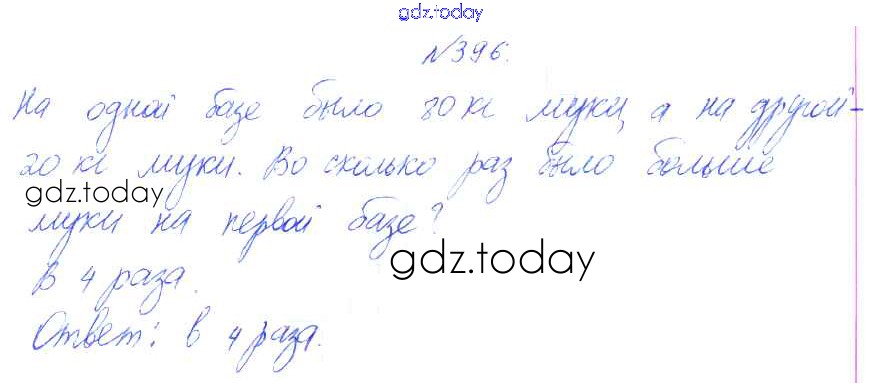 gdz.today
№396.
На одной базе было 80 кг муки, а на другой -
20 кг муки. Во сколько раз было больше
gdz.today
муки на первой базе?
gdz.today
В 4 раза.
Ответ: в 4 раза.